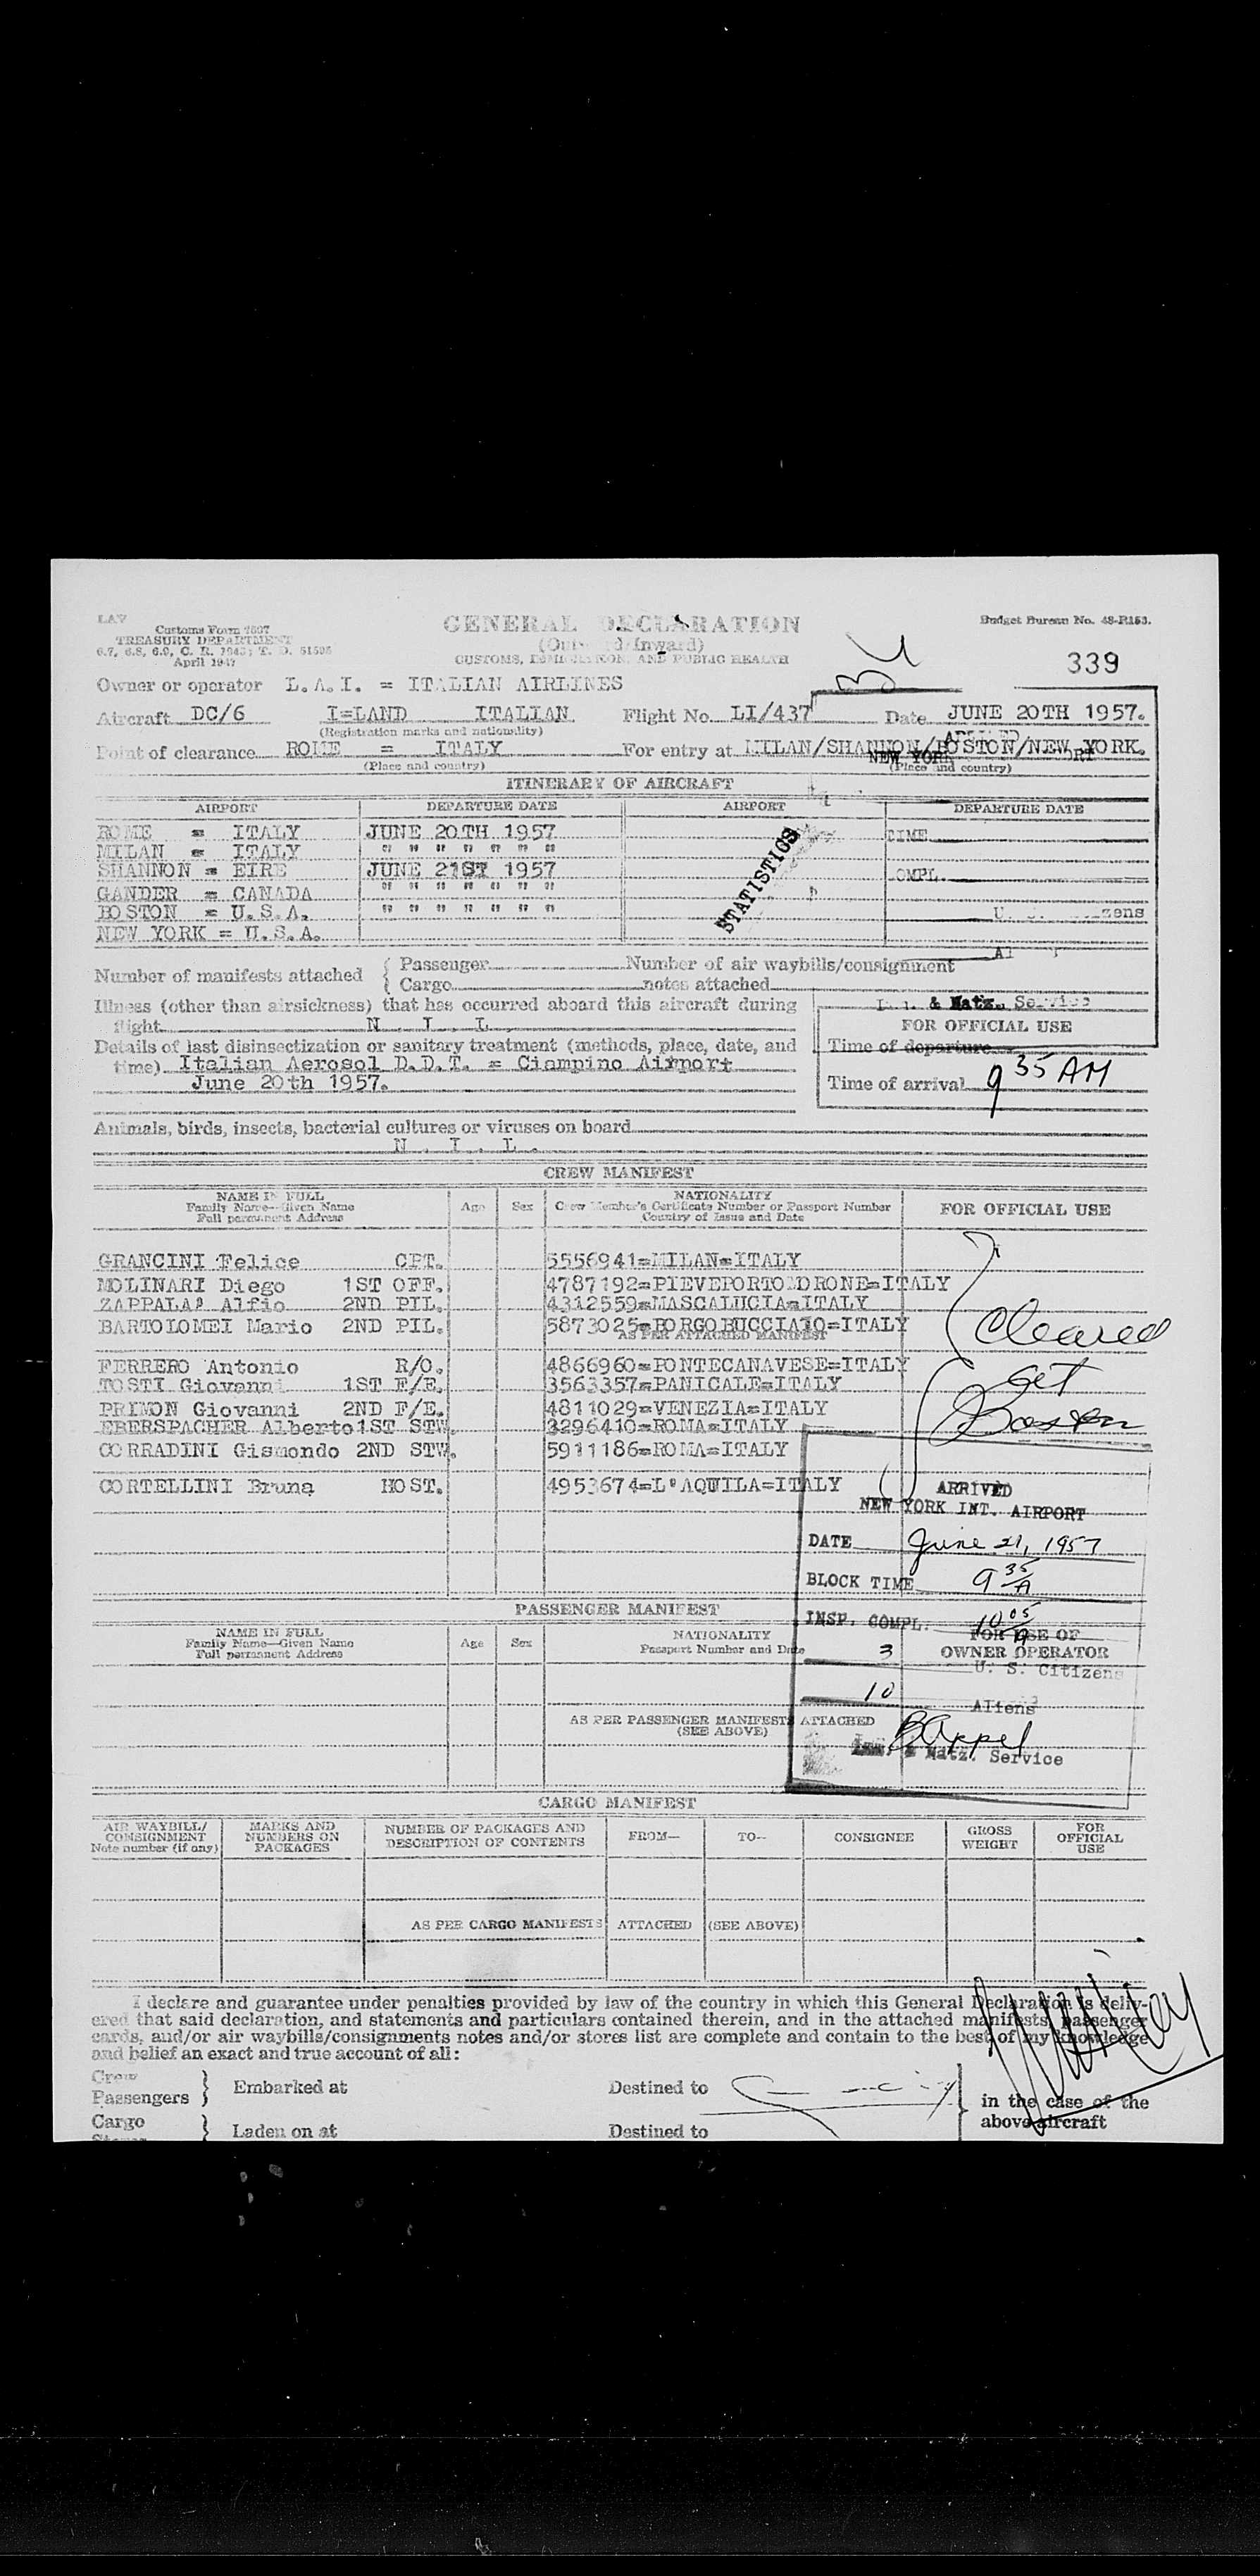 LAV
Customs Form 7507
TREASURY DEPARTMENT
6.7, 6.8, 6.9, C. R. 1943; T. D. 51595
April 1947
GENERAL DECLARATION
(Outward/Inward)
CUSTOMS, IMMIGRATION, AND PUBLIC HEALTH
Budget Bureau No. 48-R153.
339
Owner or operator L.A.I. = ITALIAN AIRLINES
Aircraft DC/6 I=LAND ITALIAN Flight No. LI/437 Date JUNE 20TH 1957.
(Registration marks and nationality)
Point of clearance ROME = ITALY For entry at MILAN/SHANNON/BOSTON/NEW YORK.
(Place and country) (Place and country)
NEW YORK
ITINERARY OF AIRCRAFT
AIRPORT DEPARTURE DATE AIRPORT DEPARTURE DATE
ROME = ITALY JUNE 20TH 1957
MILAN = ITALY " " " " " " "
SHANNON = EIRE JUNE 21ST 1957
GANDER = CANADA " " " " " " "
BOSTON = U.S.A. " " " " " " "
NEW YORK = U.S.A.
STATISTICS
TIME
OMPL.
Number of manifests attached { Passenger Number of air waybills/consignment
{ Cargo notes attached
Illness (other than airsickness) that has occurred aboard this aircraft during
flight N . I . L .
& Natz. Service
FOR OFFICIAL USE
Details of last disinsectization or sanitary treatment (methods, place, date, and
time) Italian Aerosol D.D.T. = Ciampino Airport
June 20th 1957.
Time of departure
Time of arrival 9 35 AM
Animals, birds, insects, bacterial cultures or viruses on board
N . I . L .
CREW MANIFEST
NAME IN FULL
Family Name—Given Name
Full permanent Address
Age Sex
NATIONALITY
Crew Member's Certificate Number or Passport Number
Country of Issue and Date
FOR OFFICIAL USE
GRANCINI Felice CPT. 5556941=MILAN=ITALY
MOLINARI Diego 1ST OFF. 4787192=PIEVEPORTOMORONE=ITALY
ZAPPALA' Alfio 2ND PIL. 4312559=MASCALUCIA=ITALY
BARTOLOMEI Mario 2ND PIL. 5873025=BORGO BUCCIAIO=ITALY
AS PER ATTACHED MANIFEST
FERRERO Antonio R/O. 4866960=PONTECANAVESE=ITALY
TOSTI Giovanni 1ST F/E. 3563357=PANICALE=ITALY
PRIMON Giovanni 2ND F/E. 4811029=VENEZIA=ITALY
EBERSPACHER Alberto 1ST STW. 3296410=ROMA=ITALY
CORRADINI Gismondo 2ND STW. 5911186=ROMA=ITALY
CORTELLINI Bruna HOST. 4953674=L'AQUILA=ITALY
Cleared
at
Boston
ARRIVED
NEW YORK INT. AIRPORT
DATE June 21, 1957
BLOCK TIME 9 35 A
INSP. COMPL. 10 05 A
3 U. S. Citizens
10 Aliens
BAppel
Imm. & Natz. Service
PASSENGER MANIFEST
NAME IN FULL
Family Name—Given Name
Full permanent Address
Age Sex
NATIONALITY
Passport Number and Date
FOR USE OF
OWNER OPERATOR
AS PER PASSENGER MANIFESTS ATTACHED
(SEE ABOVE)
CARGO MANIFEST
AIR WAYBILL/
CONSIGNMENT
Note number (if any)
MARKS AND
NUMBERS ON
PACKAGES
NUMBER OF PACKAGES AND
DESCRIPTION OF CONTENTS
FROM—
TO—
CONSIGNEE
GROSS
WEIGHT
FOR
OFFICIAL
USE
AS PER CARGO MANIFESTS ATTACHED (SEE ABOVE)
I declare and guarantee under penalties provided by law of the country in which this General Declaration is deliv-
ered that said declaration, and statements and particulars contained therein, and in the attached manifests, passenger
cards, and/or air waybills/consignments notes and/or stores list are complete and contain to the best of my knowledge
and belief an exact and true account of all:
Crew
Passengers } Embarked at Destined to
Cargo
Stores } Laden on at Destined to
in the case of the
above aircraft